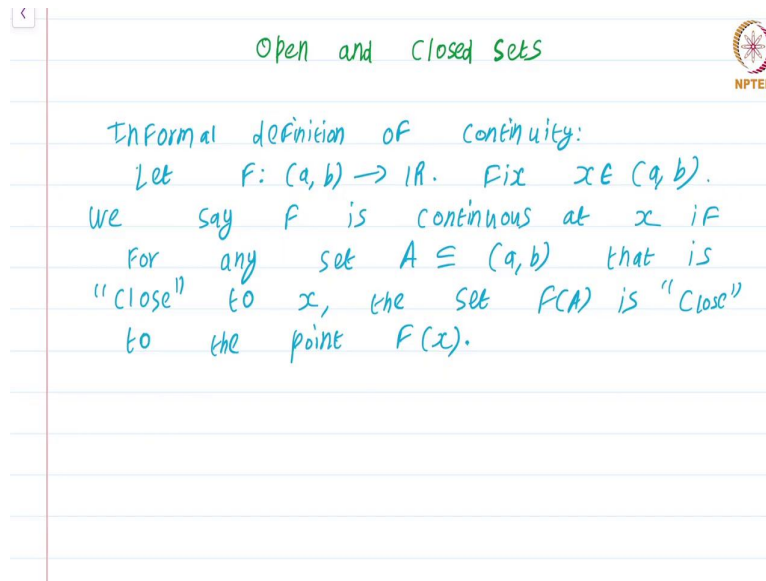 Open and Closed Sets
NPTEL
Informal definition of Continuity:
Let F: (a, b) → ℝ. Fix x ∈ (a, b).
we say F is continuous at x if
For any set A ⊆ (a, b) that is
"close" to x, the set F(A) is "Close"
to the point F(x).